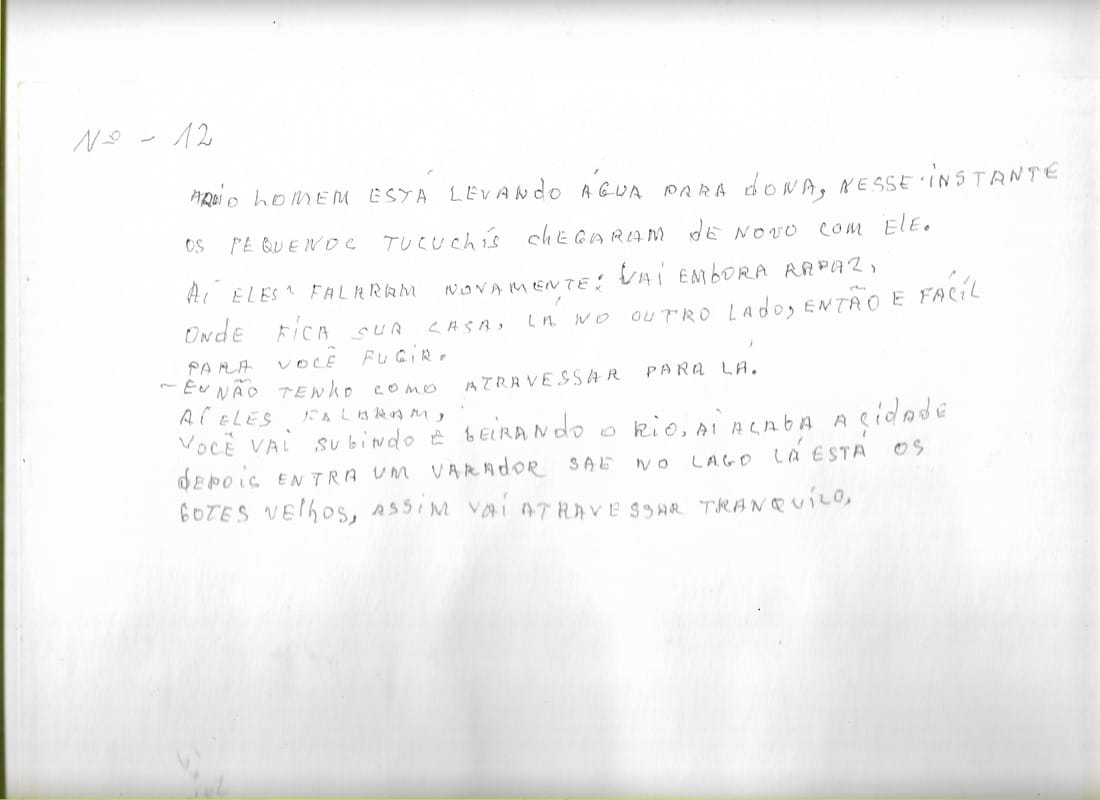 Nº - 12
AQUI O hOMEM ESTÁ LEVANdO ÁGUA PARA dONA, NESSE INSTANTE
OS PEQUENOS TUCUChíS ChEGARAM dE NOVO COM ELE.
AÍ ELES FALARAM NOVAMENTE: VAÍ EMBORA RAPAZ,
ONdE FÍCA SUA CASA, LÁ NO OUTRO LAdO, ENTÃO E FACÍL
PARA VOCÊ FUGIR.
- EU NÃO TENhO COMO ATRAVESSAR PARA LÁ.
AÍ ELES FALARAM,
VOCÊ VAÍ SUbINdO E bEIRANdO O RIO, AÍ ACAbA A CIdAdE
dEPOIS ENTRA UM VARAdOR SAE NO LAGO LÁ ESTÁ OS
BOTES VElhOS, ASSIM VAÍ ATRAVESSAR TRANQUÍLO,